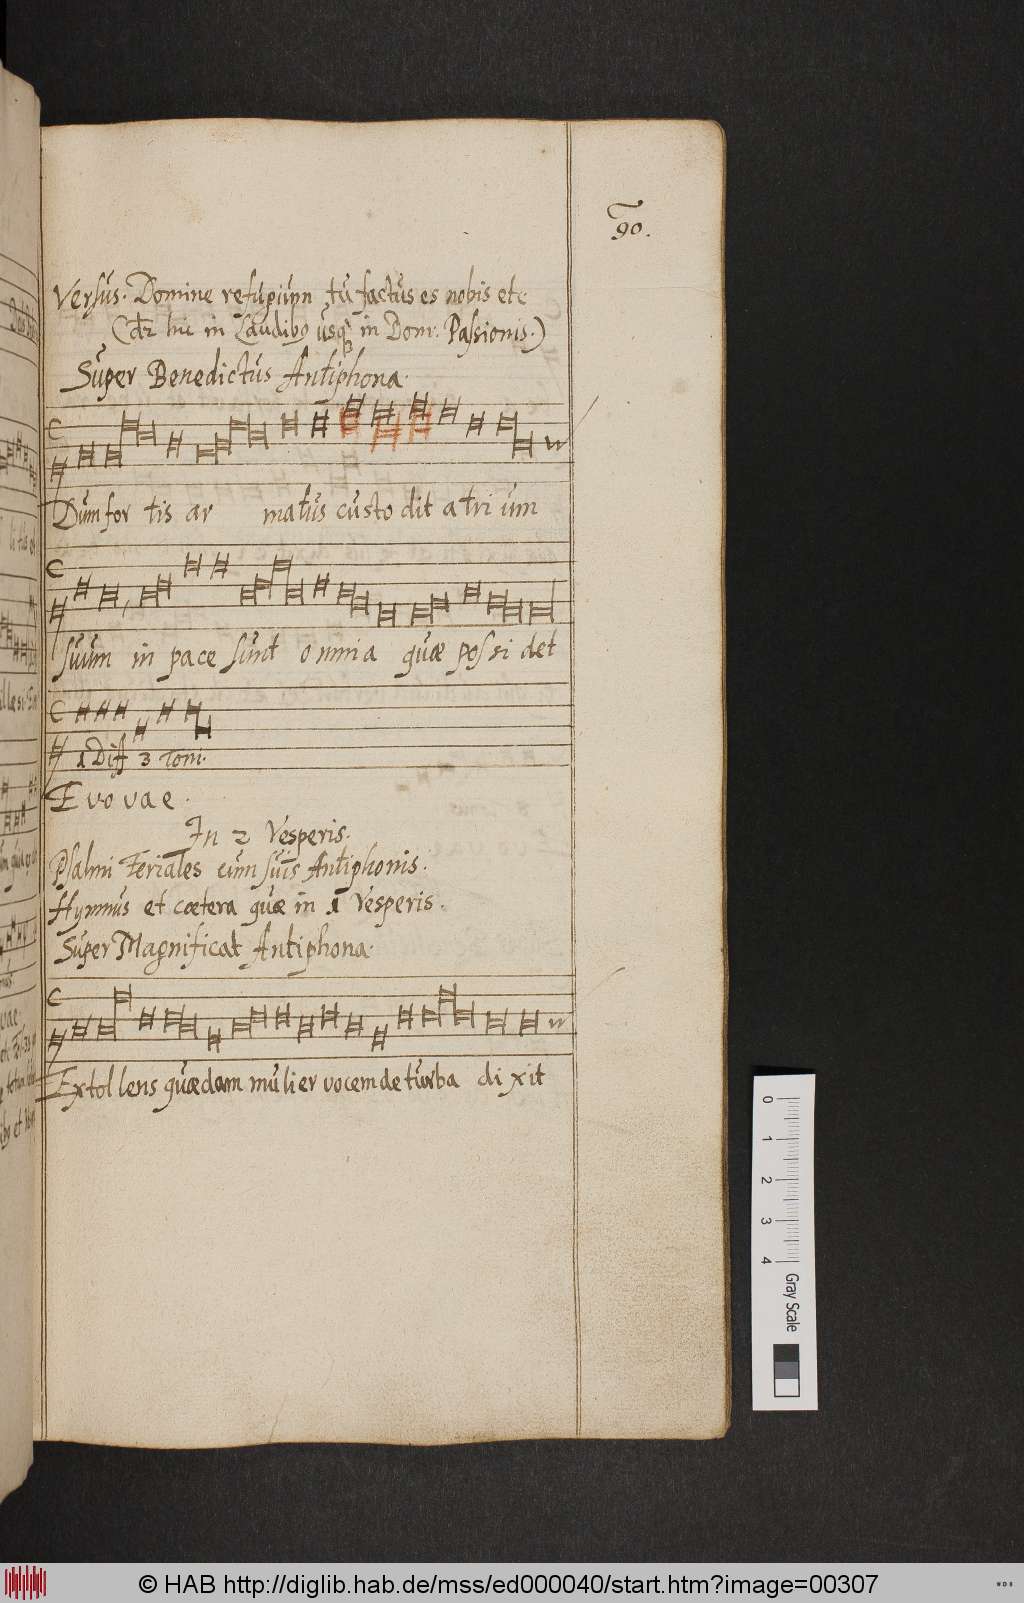 90.
Versus. Domine refugium tu factus es nobis etc
(dr hic in Laudibo usq in Dom. Passionis.)
Super Benedictus Antiphona.
Dum for tis ar matus custo dit atri um
suum in pace sunt omnia quæ possi det
1 Diff 3 Toni.
E vo vae.
In 2 Vesperis.
Psalmi Feriales cum suis Antiphonis.
Hymnus et cœtera quæ in 1 Vesperis.
Super Magnificat Antiphona.
Extol lens quædam mulier vocem de turba di xit
0 1 2 3 4 Gray Scale
© HAB http://diglib.hab.de/mss/ed000040/start.htm?image=00307